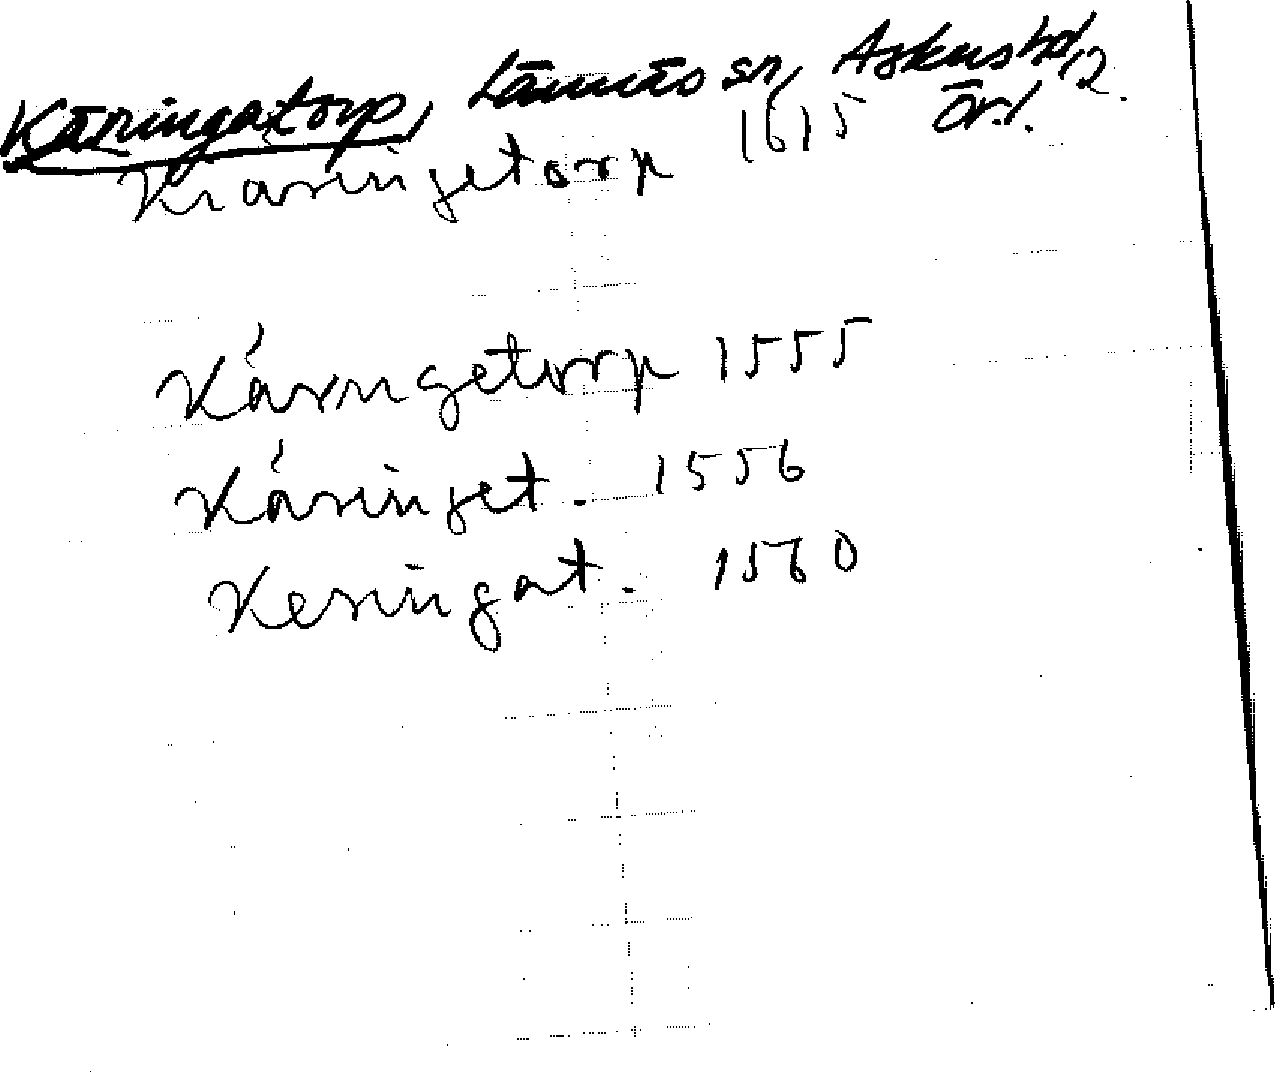 Käringatorp, Lännäs sn, Askers hd, Ör.l. 12.
Kiäringetorp 1615
Käringetorp 1555
Käringet. 1556
Keringat. 1560